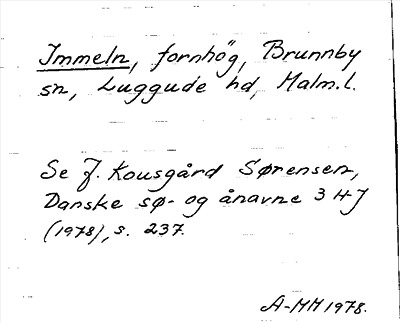 Immeln, fornhög, Brunnby
sn, Luggude hd, Malm.l.
Se J. Kousgård Sørensen,
Danske sø- og ånavne 3 H-J
(1978), s. 237.
A-MM 1978.